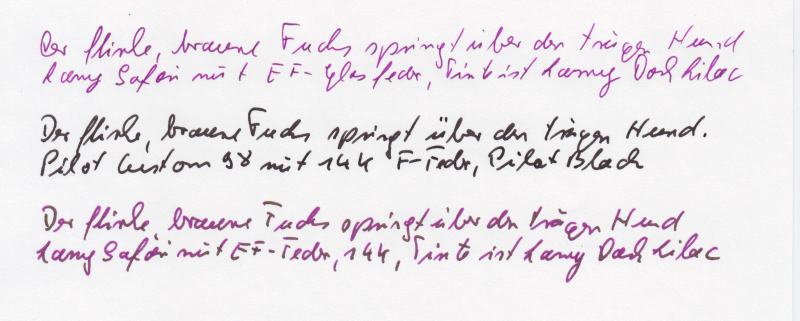 Der flinke, braune Fuchs springt über den trägen Hund
Lamy Safari mit EF-Glasfeder, Tinte ist Lamy Dark Lilac
Der flinke, braune Fuchs springt über den trägen Hund.
Pilot Custom 98 mit 14K F-Feder, Pilot Black
Der flinke, braune Fuchs springt über den trägen Hund
Lamy Safari mit EF-Feder, 14K, Tinte ist Lamy Dark Lilac